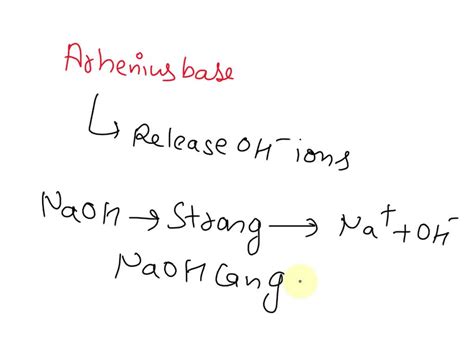 Arhenius base
↳ Release OH⁻ ions
NaOH → Strong → Na⁺ + OH⁻
NaOH Can g